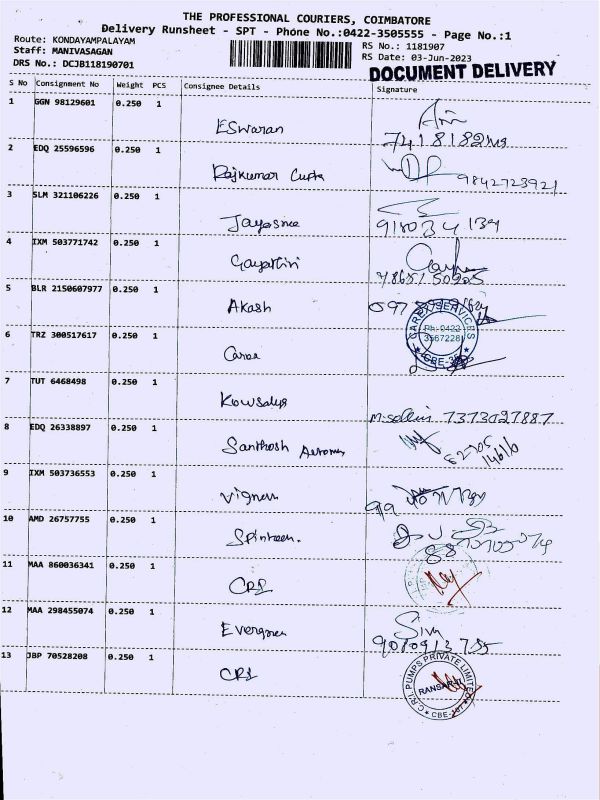 THE PROFESSIONAL COURIERS, COIMBATORE
Delivery Runsheet - SPT - Phone No.:0422-3505555 - Page No.:1
Route: KONDAYAMPALAYAM
Staff: MANIVASAGAN
DRS No.: DCJB118190701
RS No.: 1181907
RS Date: 03-Jun-2023
DOCUMENT DELIVERY
S No Consignment No Weight PCS Consignee Details Signature
1 GGN 98129601 0.250 1
Eswaran
2 EDQ 25596596 0.250 1
Rajkumar Gupta 9842723921
3 SLM 321106226 0.250 1
Jayasree
4 IXM 503771742 0.250 1
Gayathiri
5 BLR 2150607977 0.250 1
Akash
6 TRZ 300517617 0.250 1
SERVICES
Ph: 0422
3567228
CBE-35
7 TUT 6468498 0.250 1
Kowsalya 7373027887
8 EDQ 26338897 0.250 1
Santhosh
9 IXM 503736553 0.250 1
Vignesh
10 AMD 26757755 0.250 1
11 MAA 860036341 0.250 1
CRI
12 MAA 298455074 0.250 1
Evergreen Siva
13 JBP 70528208 0.250 1
CRI
C.R.I. PUMPS PRIVATE LIMITED